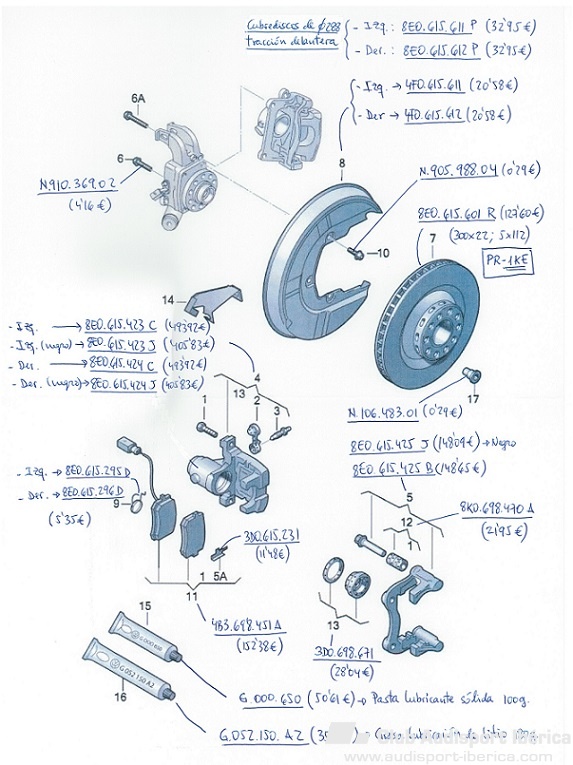 Cubrediscos de ø288 - Izq.: 8E0.615.611 P (32'95€)
tracción delantera - Der.: 8E0.615.612 P (32'95€)
- Izq → 4F0.615.611 (20'58€)
- Der → 4F0.615.612 (20'58€)
6A
8
6
N.910.369.02
(4'16€)
N.905.988.04 (0'29€)
8E0.615.601 R (127'60€)
7 (300x22; 5x112)
PR-1KE
10
14
- Izq. → 8E0.615.423 C (493'92€)
- Izq. (negro) → 8E0.615.423 J (405'83€)
- Der. → 8E0.615.424 C (493'92€)
- Der. (negro) → 8E0.615.424 J (405'83€)
4
13
1 2 3
17
N.106.483.01 (0'29€)
8E0.615.425 J (148'09€) → Negro
8E0.615.425 B (148'65€)
- Izq. → 8E0.615.295 D
- Der. → 8E0.615.296 D
9
(5'35€)
5
8K0.698.470 A
12
(21'95€)
1
3D0.615.231
(11'48€)
1 5A
11
13
4B3.698.451 A
(152'38€)
3D0.698.671
(28'04€)
15
G 000 650
G 052 150 A2
16
G.000.650 (50'61€) → Pasta lubricante sólida 100g.
G.052.150.A2 → Grasa lubricación de litio
Club Audisport Iberica
www.audisport-iberica.com